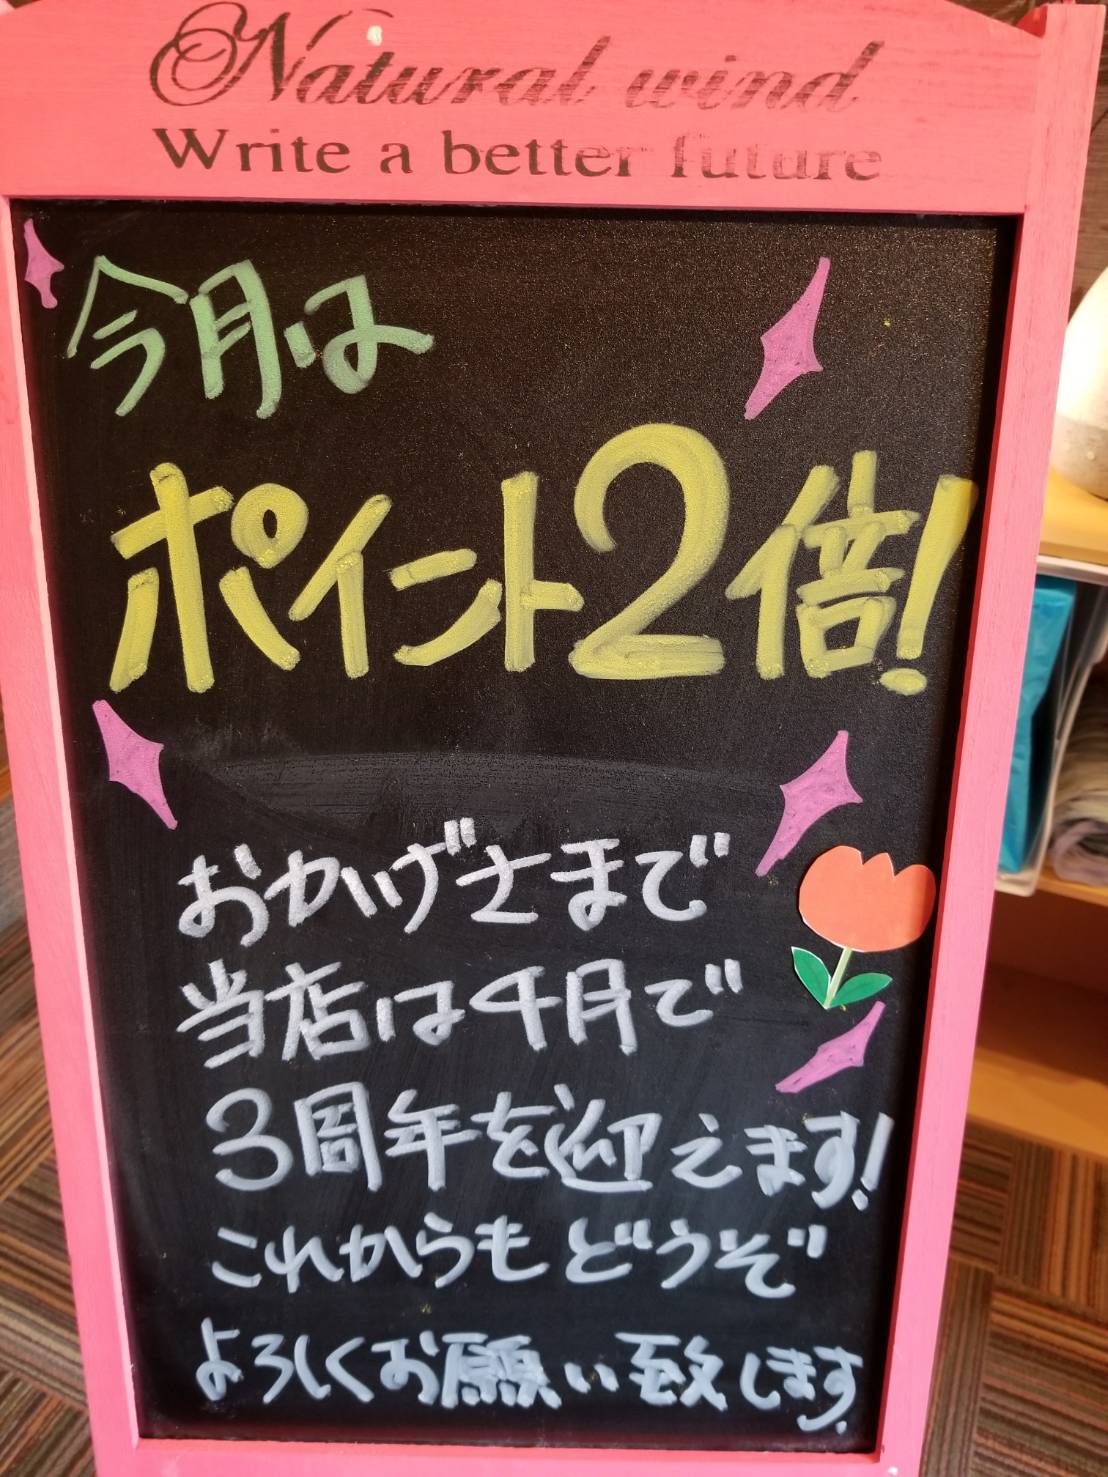 Natural wind
Write a better future
今月は
ポイント2倍!
おかげさまで
当店は4月で
3周年を迎えます!
これからもどうぞ
よろしくお願い致します